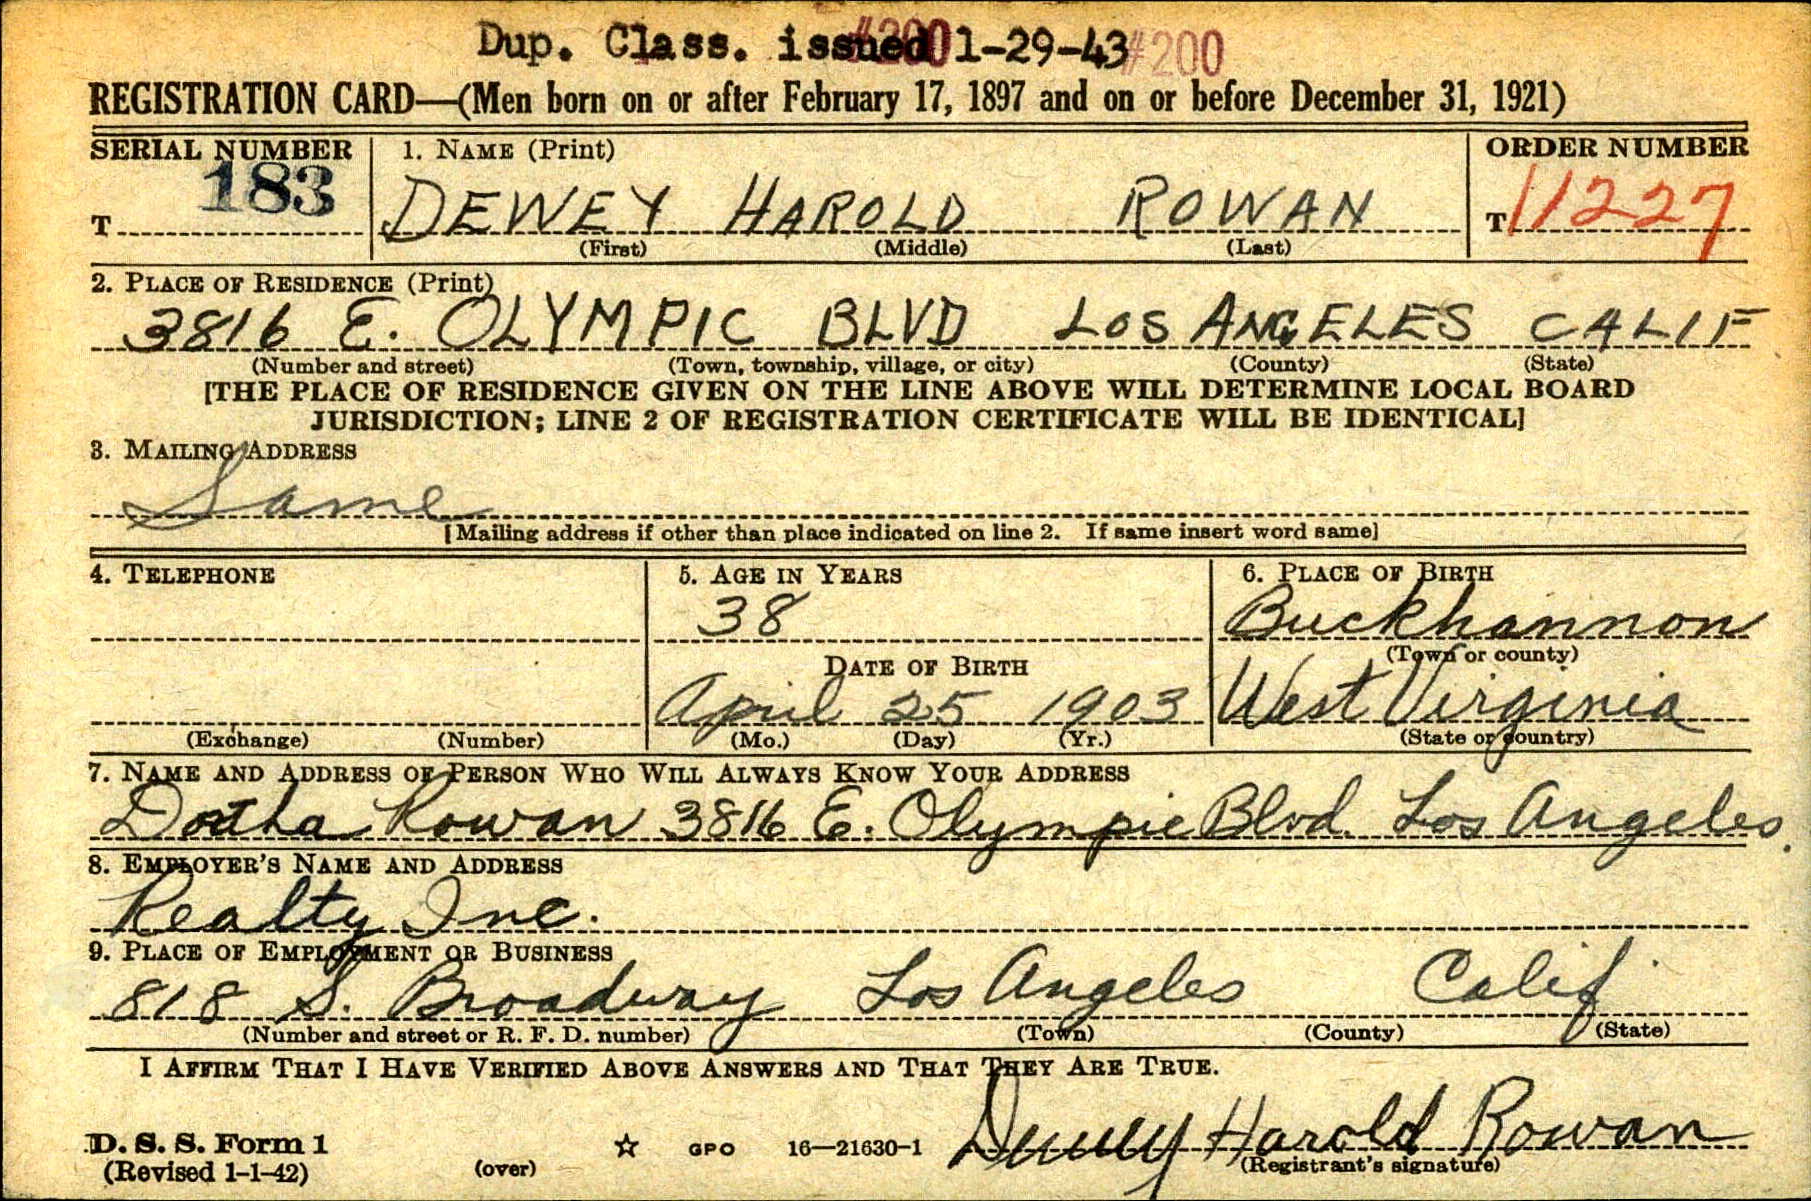 Dup. Class. issued 1-29-43
#200 #200
REGISTRATION CARD—(Men born on or after February 17, 1897 and on or before December 31, 1921)
SERIAL NUMBER 1. NAME (Print) ORDER NUMBER
T 183 DEWEY HAROLD ROWAN T 11227
(First) (Middle) (Last)
2. PLACE OF RESIDENCE (Print)
3816 E. OLYMPIC BLVD LOS ANGELES CALIF
(Number and street) (Town, township, village, or city) (County) (State)
[THE PLACE OF RESIDENCE GIVEN ON THE LINE ABOVE WILL DETERMINE LOCAL BOARD
JURISDICTION; LINE 2 OF REGISTRATION CERTIFICATE WILL BE IDENTICAL]
3. MAILING ADDRESS
Same
[Mailing address if other than place indicated on line 2. If same insert word same]
4. TELEPHONE 5. AGE IN YEARS 6. PLACE OF BIRTH
38 Buckhannon
DATE OF BIRTH (Town or county)
April 25 1903 West Virginia
(Exchange) (Number) (Mo.) (Day) (Yr.) (State or country)
7. NAME AND ADDRESS OF PERSON WHO WILL ALWAYS KNOW YOUR ADDRESS
Rowan 3816 E. Olympic Blvd. Los Angeles.
8. EMPLOYER'S NAME AND ADDRESS
Realty Inc.
9. PLACE OF EMPLOYMENT OR BUSINESS
818 S. Broadway Los Angeles Calif
(Number and street or R. F. D. number) (Town) (County) (State)
I AFFIRM THAT I HAVE VERIFIED ABOVE ANSWERS AND THAT THEY ARE TRUE.
Dewey Harold Rowan
D. S. S. Form 1 ☆ GPO 16—21630-1 (Registrant's signature)
(Revised 1-1-42) (over)